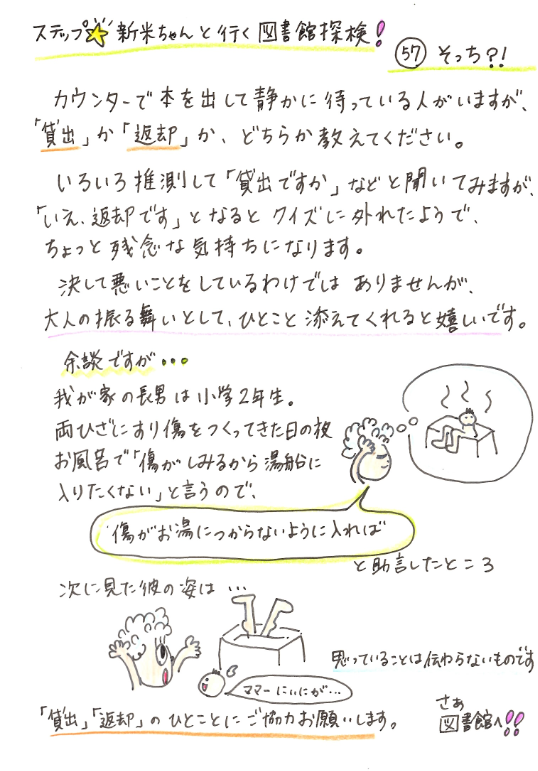 ステップ☆新米ちゃんと行く図書館探検!
57 そっち?!
カウンターで本を出して静かに待っている人がいますが、
「貸出」か「返却」か、どちらか教えてください。
いろいろ推測して「貸出ですか」などと聞いてみますが、
「いえ、返却です」となるとクイズに外れたようで、
ちょっと残念な気持ちになります。
決して悪いことをしているわけではありませんが、
大人の振る舞いとして、ひとこと添えてくれると嬉しいです。
余談ですが・・・
我が家の長男は小学2年生。
両ひざにすり傷をつくってきた日の夜
お風呂で「傷がしみるから湯船に
入りたくない」と言うので、
傷がお湯につからないように入れば
と助言したところ
次に見た彼の姿は…
ママーにいにが…
思っていることは伝わらないものです
「貸出」「返却」のひとことにご協力お願いします。
さぁ
図書館へ!!